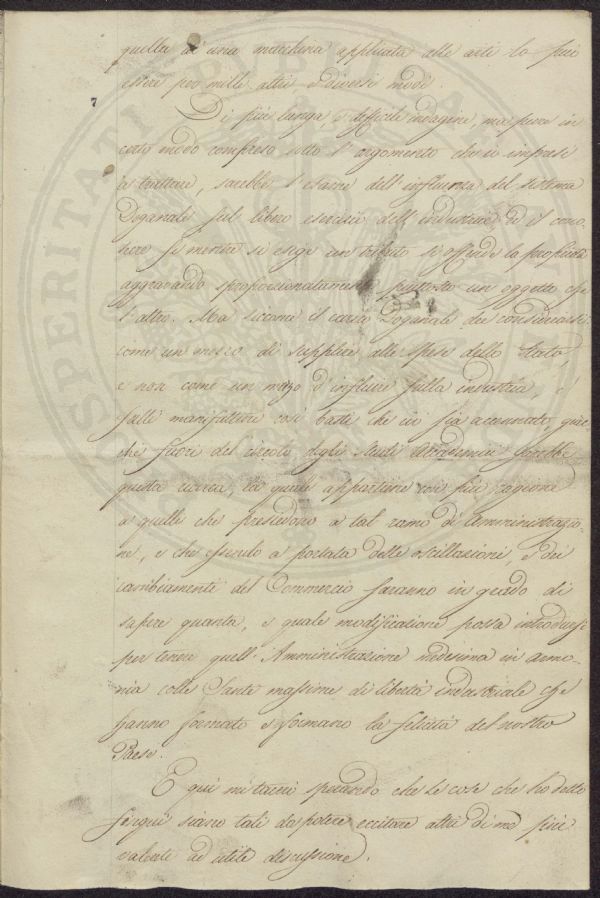 quella di una macchina applicata alle arti lo può
essere per mille altri e diversi modi.
7
Di più lunga, e difficile indagine, ma pure in
certo modo compreso sotto l'argomento che io impresi
a trattare, sarebbe l'esame dell'influenza del sistema
Doganale sul libero esercizio dell'industria, di il cono-
scere se mentre si esige un tributo si offende la proprietà
aggravando sproporzionatamente piuttosto un oggetto che
l'altro. Ma siccome il carico Doganale dee considerarsi
come un mezzo di supplire alle spese dello Stato,
e non come un mezzo d'influire sulla industria, e
sulle manifatture così basti che io sia accennato, giac-
chè fuori del circolo degli studi Accademici sarebbe
questa ricerca, la quale appartiene con più ragione
a quelli che presiedono a tal ramo di Amministrazio-
ne, e che essendo a portata delle oscillazioni, e dei
cambiamenti del Commercio saranno in grado di
sapere quanta, e quale modificazione possa introdursi
per tenere quell'Amministrazione medesima in armo-
nia colle Sante massime di libertà industriale che
hanno formato e formano la felicità del nostro
Paese.
E qui mi tacerò sperando che le cose che ho detto
sinqui siano tali da potere eccitare altri di me più
valenti ad utile discussione.